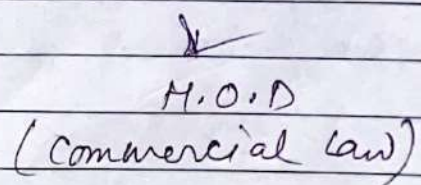 H.O.D
(Commercial Law)